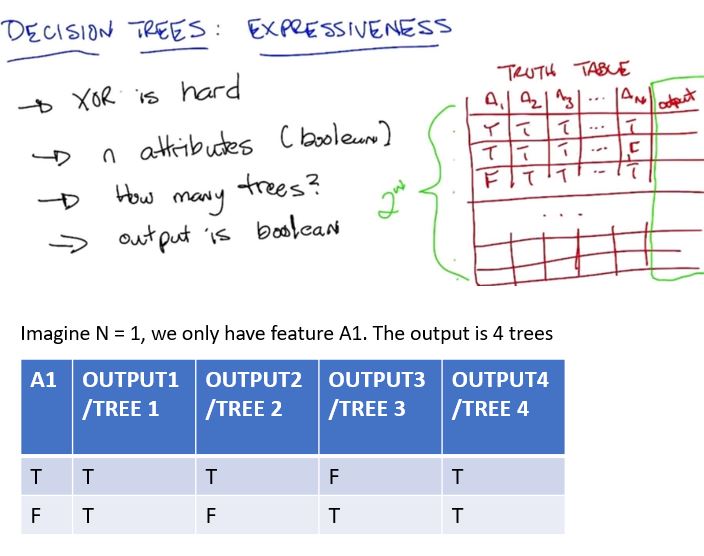 DECISION TREES: EXPRESSIVENESS
→ XOR is hard
→ n attributes (boolean)
→ How many trees?
→ output is boolean
TRUTH TABLE
A1 A2 A3 ... AN output
T T ... T
T T T ... F
F T T ... T
...
2^N
Imagine N = 1, we only have feature A1. The output is 4 trees
A1 OUTPUT1 /TREE 1 OUTPUT2 /TREE 2 OUTPUT3 /TREE 3 OUTPUT4 /TREE 4
T T T F T
F T F T T